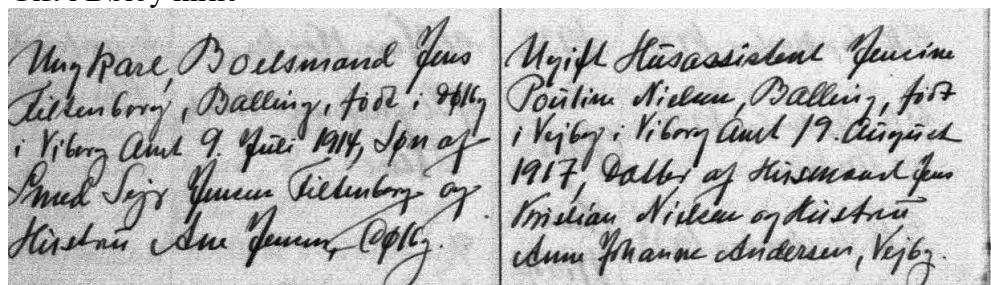 Ungkarl, Boelsmand Jens
Filtenborg, Balling, født i
i Viborg Amt 9. Juli 1914, Søn af
Smed Sejr Jensen Filtenborg og
Hustru Ane Jensen,
Ugift Husassistent Jensine
Pouline Nielsen, Balling, født
i Vejby i Viborg Amt 19. August
1917, Datter af Husmand Jens
Kristian Nielsen og Hustru
Anne Johanne Andersen, Vejby.